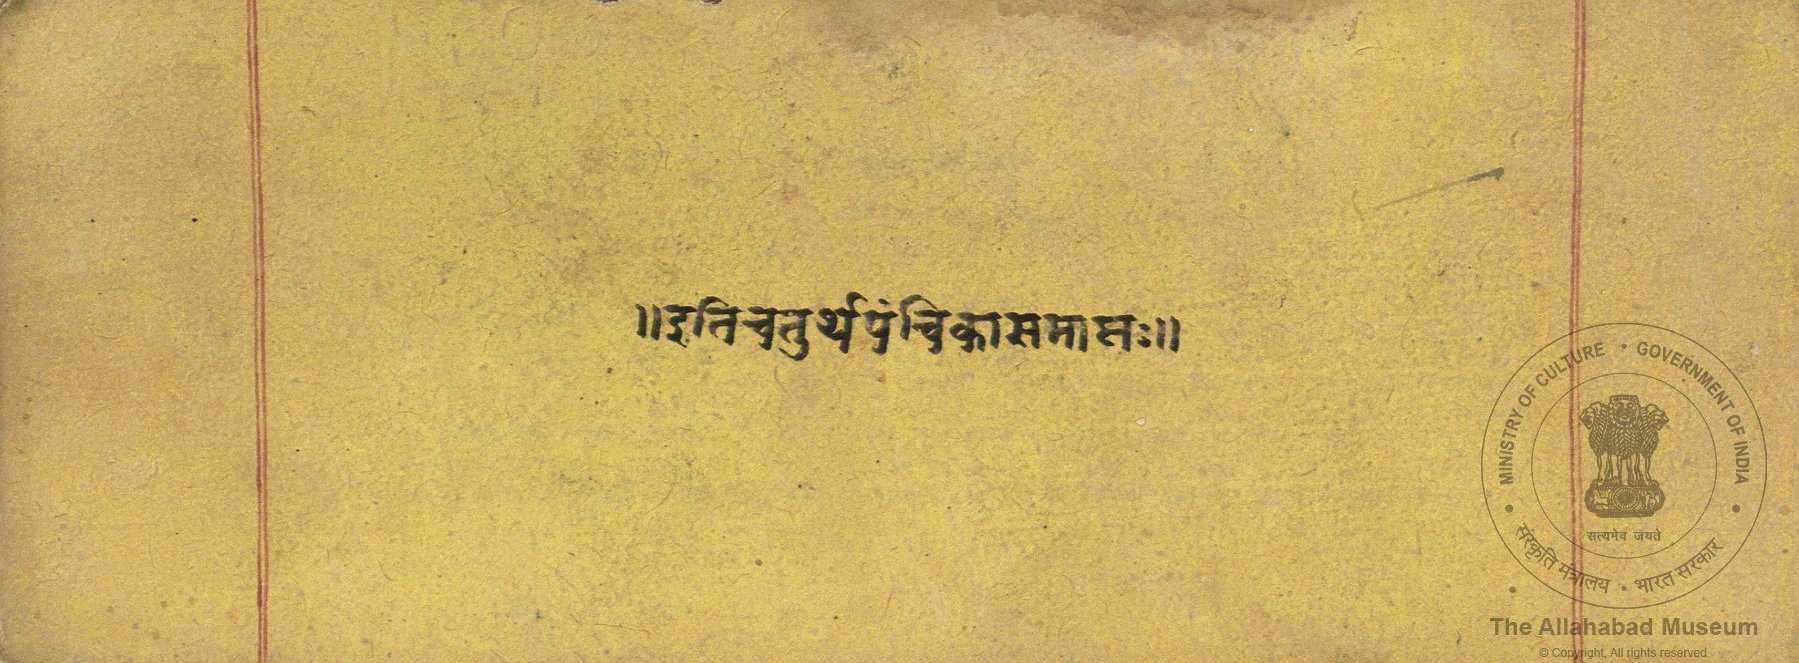 ॥इतिचतुर्थपंचिकासमाप्तः॥
MINISTRY OF CULTURE • GOVERNMENT OF INDIA
सत्यमेव जयते
संस्कृति मंत्रालय • भारत सरकार
The Allahabad Museum
© Copyright, All rights reserved